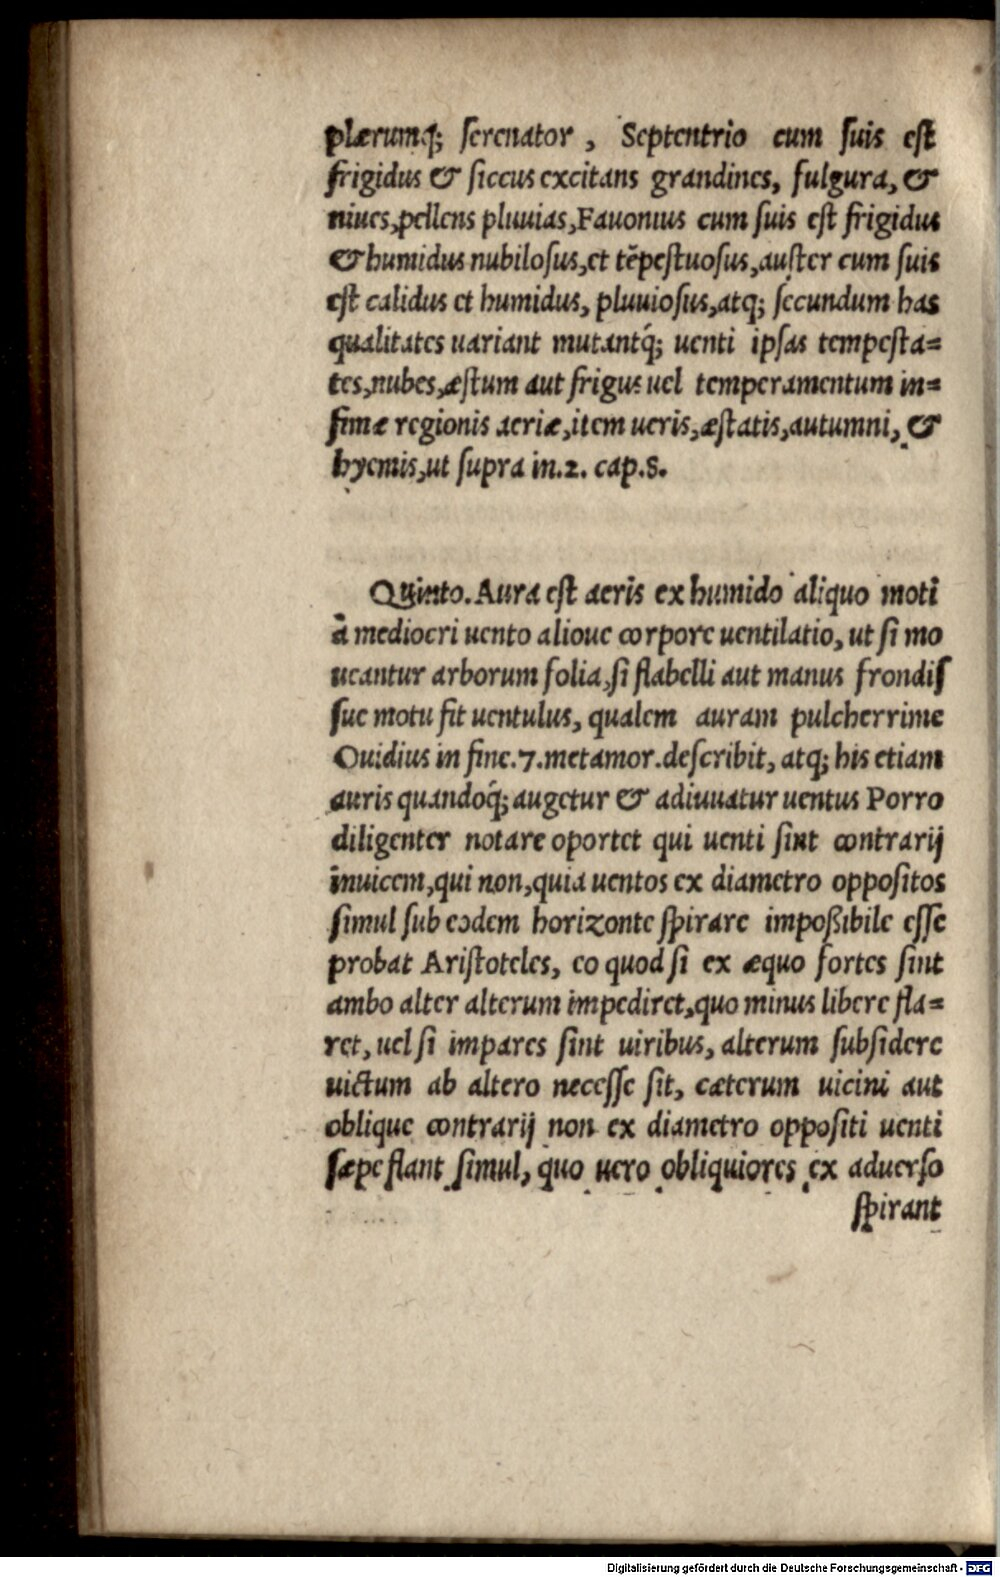 plærumq́; serenator, Septentrio cum suis est
frigidus & siccus excitans grandines, fulgura, &
niues, pellens pluuias, Fauonius cum suis est frigidus
& humidus nubilosus, et tẽpestuosus, auster cum suis
est calidus et humidus, pluuiosus, atq; secundum has
qualitates uariant mutantq́; uenti ipsas tempesta=
tes, nubes, æstum aut frigus uel temperamentum in=
fimæ regionis aeriæ, item ueris, æstatis, autumni, &
hyemis, ut supra in.2. cap.8.
Quinto. Aura est aeris ex humido aliquo moti
à mediocri uento alioue corpore uentilatio, ut si mo
ueantur arborum folia, si flabelli aut manus frondis
sue motu fit uentulus, qualem auram pulcherrime
Ouidius in fine.7.metamor.describit, atq; his etiam
auris quandoq́; augetur & adiuuatur uentus Porro
diligenter notare oportet qui uenti sint contrarij
inuicem, qui non, quia uentos ex diametro oppositos
simul sub eodem horizonte spirare impoßibile esse
probat Aristoteles, eo quod si ex æquo fortes sint
ambo alter alterum impediret, quo minus libere fla=
ret, uel si impares sint uiribus, alterum subsidere
uictum ab altero necesse sit, cæterum uicini aut
oblique contrarij non ex diametro oppositi uenti
sæpe flant simul, quo uero obliquiores ex aduerso
spirant
Digitalisierung gefördert durch die Deutsche Forschungsgemeinschaft - DFG